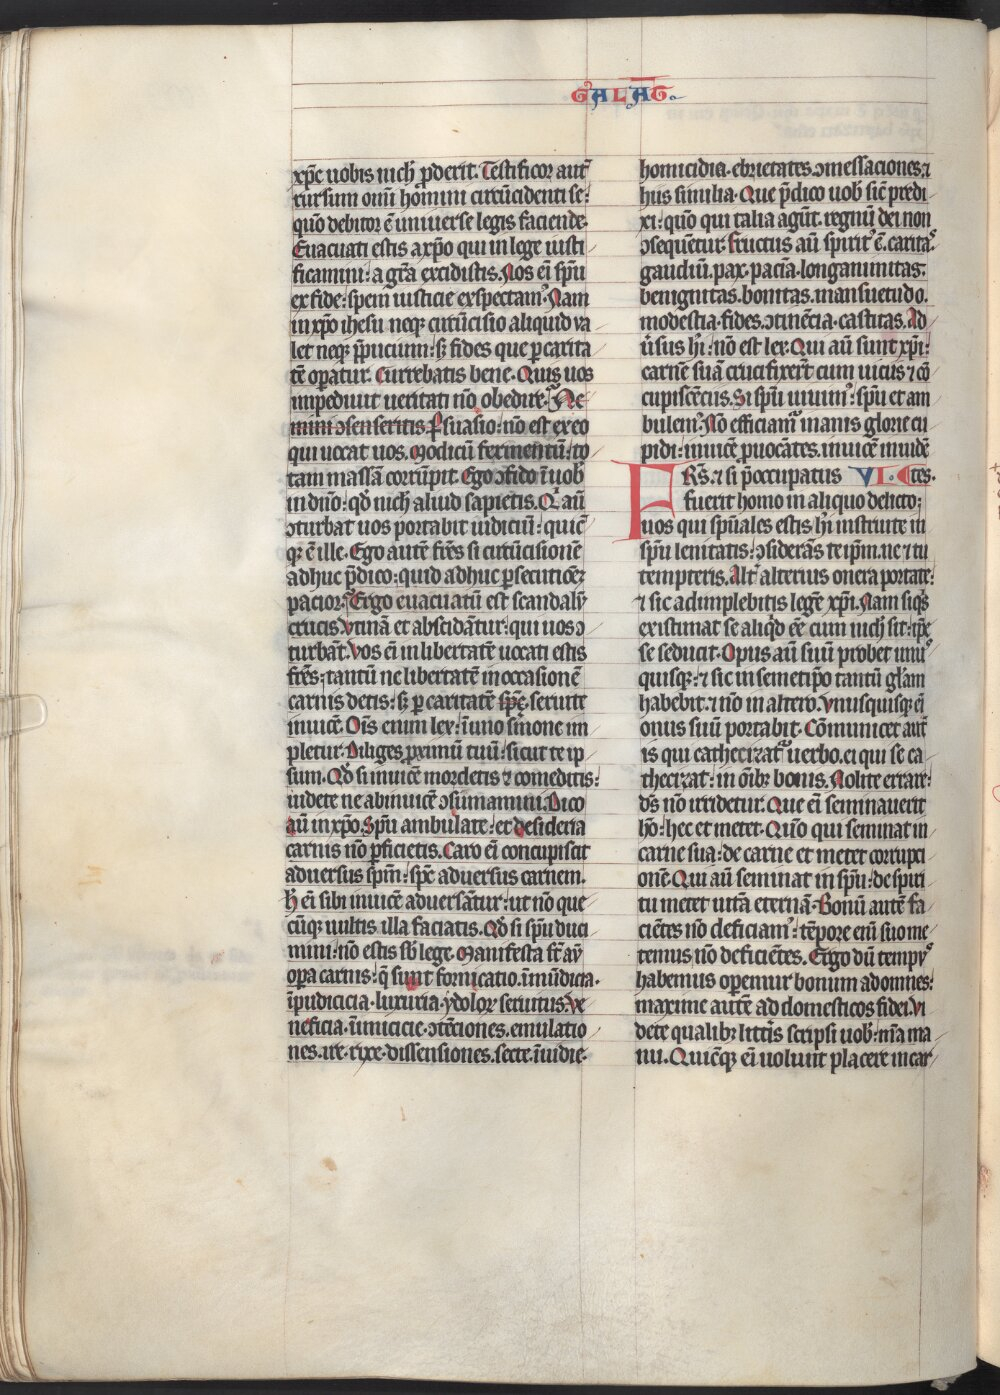 GALAT.
xp̄c uobis nich̄ ꝓderit. Testificor aut̄
rursum omi̅ homini circu̅cidenti se:
quo̅ debitor e̅ uniuerse legis faciende.
Euacuati estis a xp̄o qui in lege iusti
ficamini: a gr̄a excidistis. Nos ei̅ sp̄u
ex fide: spem iusticie exspectamꝰ. Nam
in xp̄o ihesu neqꝫ circu̅cisio aliquid ua
let neqꝫ p̄puciu̅: sꝫ fides que ꝑ carita
te̅ oꝑatur. Currebatis bene. Quis uos
impediuit ueritati no̅ obedire. Ne
mini ɔsenseritis. ꝑsuasio: no̅ est ex eo
qui uocat uos. Modicu̅ fermentu̅: to
tam massa̅ corru̅pit. Ego ɔfido i̅ uob̄
in dn̄o: qd̄ nich̄ aliud sapietis. Qi au̅
ɔturbat uos portabit iudiciu̅: quic̅
qꝫ e̅ ille. Ego aute̅ fr̄es si circu̅cisione̅
adhuc p̄dico: quid adhuc ꝑsecutione̅
pacior. Ergo euacuatu̅ est scandalu̅
crucis. Vtina̅ et abscida̅tur: qui uos ɔ
turba̅t. Vos ei̅ in libertate̅ uocati estis
fr̄es: tantu̅ ne libertate̅ in occasione̅
carnis detis: sꝫ ꝑ caritate̅ sp̄c seruite
inuice̅. Oi̅s enim lex: i̅ uno smone im
pletur. Diliges ꝓximu̅ tuu̅: sicut te ip
sum. Qd̄ si inuice̅ mordetis ⁊ comeditis:
uidete ne abinuice̅ ɔsumamini. Dico
au̅ in xp̄o. Sp̄u ambulate: et desideria
carnis no̅ ꝑficietis. Caro ei̅ concupiscit
aduersus sp̄m: sp̄c aduersus carnem.
h̄ ei̅ sibi inuice̅ aduersa̅tur: ut no̅ que
cu̅qꝫ uultis illa faciatis. Qd̄ si sp̄u duci
mini: no̅ estis sb̄ lege. Manifesta s̅t au̅
oꝑa carnis: q̄ sunt fornicatio. i̅mu̅dicia.
i̅pudicicia. luxuria. ydolor̄ seruitus. Ve
neficia. i̅imicicie. ɔte̅ciones. emulatio
nes. ire. rixe. dissensiones. secte. i̅uidie.
homicidia. ebrietates. ɔmessaciones. ⁊
hiis similia. Que p̄dico uob̄ sic̅ predi
xi: quo̅ qui talia agu̅t. regnu̅ dei non
ɔseque̅tur. Fructus au̅ spiritꝰ e̅. caritaꝰ.
gaudiu̅. pax. pacia̅. longanimitas.
benignitas. bonitas. mansuetudo.
modestia. fides. ɔtine̅cia. castitas. Ad
u̅sus hi̅: no̅ est lex. Qui au̅ sunt xp̄i:
carne̅ sua̅ crucifixer̅t cum uiciis ⁊ co̅
cupisce̅ciis. Si sp̄u uiuimꝰ: sp̄u et am
bulemꝰ. No̅ efficiamur inanis glorie cu
pidi: inuice̅ ꝓuoca̅tes. inuice̅ inuide̅
tes. VI.
FRS̄. ⁊ si p̄occupatus
fuerit homo in aliquo delicto:
uos qui spu̅ales estis hi̅ instruite in
sp̄u lenitatis: ɔsidera̅s te ip̄m. ne ⁊ tu
tempteris. Alt̄ alterius onera portate:
⁊ sic adimplebitis lege̅ xp̄i. Nam si qis
existimat se aliqid ee̅ cum nich̄ sit: ip̄e
se seducit. Opus au̅ suu̅ probet unuꝰ
quisqꝫ: ⁊ sic in semetip̄o tantu̅ gl̄iam
habebit. ⁊ no̅ in altero. Vnusquisqꝫ ei̅
onus suu̅ portabit. Co̅municet aut̄
is qui cathecizatur uerbo. ei qui se ca
thecizat: in o̅ibꝫ bonis. Nolite errare:
ds̄ no̅ irridetur. Que ei̅ seminauerit
ho̅: hec et metet. Quo̅ qui seminat in
carne sua: de carne et metet corrupci
one̅. Qui au̅ seminat in sp̄u: de spiri
tu metet uita̅ eterna̅. Bonu̅ aute̅ fa
cie̅tes no̅ deficiamꝰ: te̅pore eni̅ suo me
temus no̅ deficie̅tes. Ergo du̅ tempꝰ
habemus operemur bonum ad omnes:
maxime aute̅ ad domesticos fidei. Vi
dete qualibꝫ litt̄is scripsi uob̄: mi̅a ma
nu. Quic̅qꝫ ei̅ uolunt placere in car